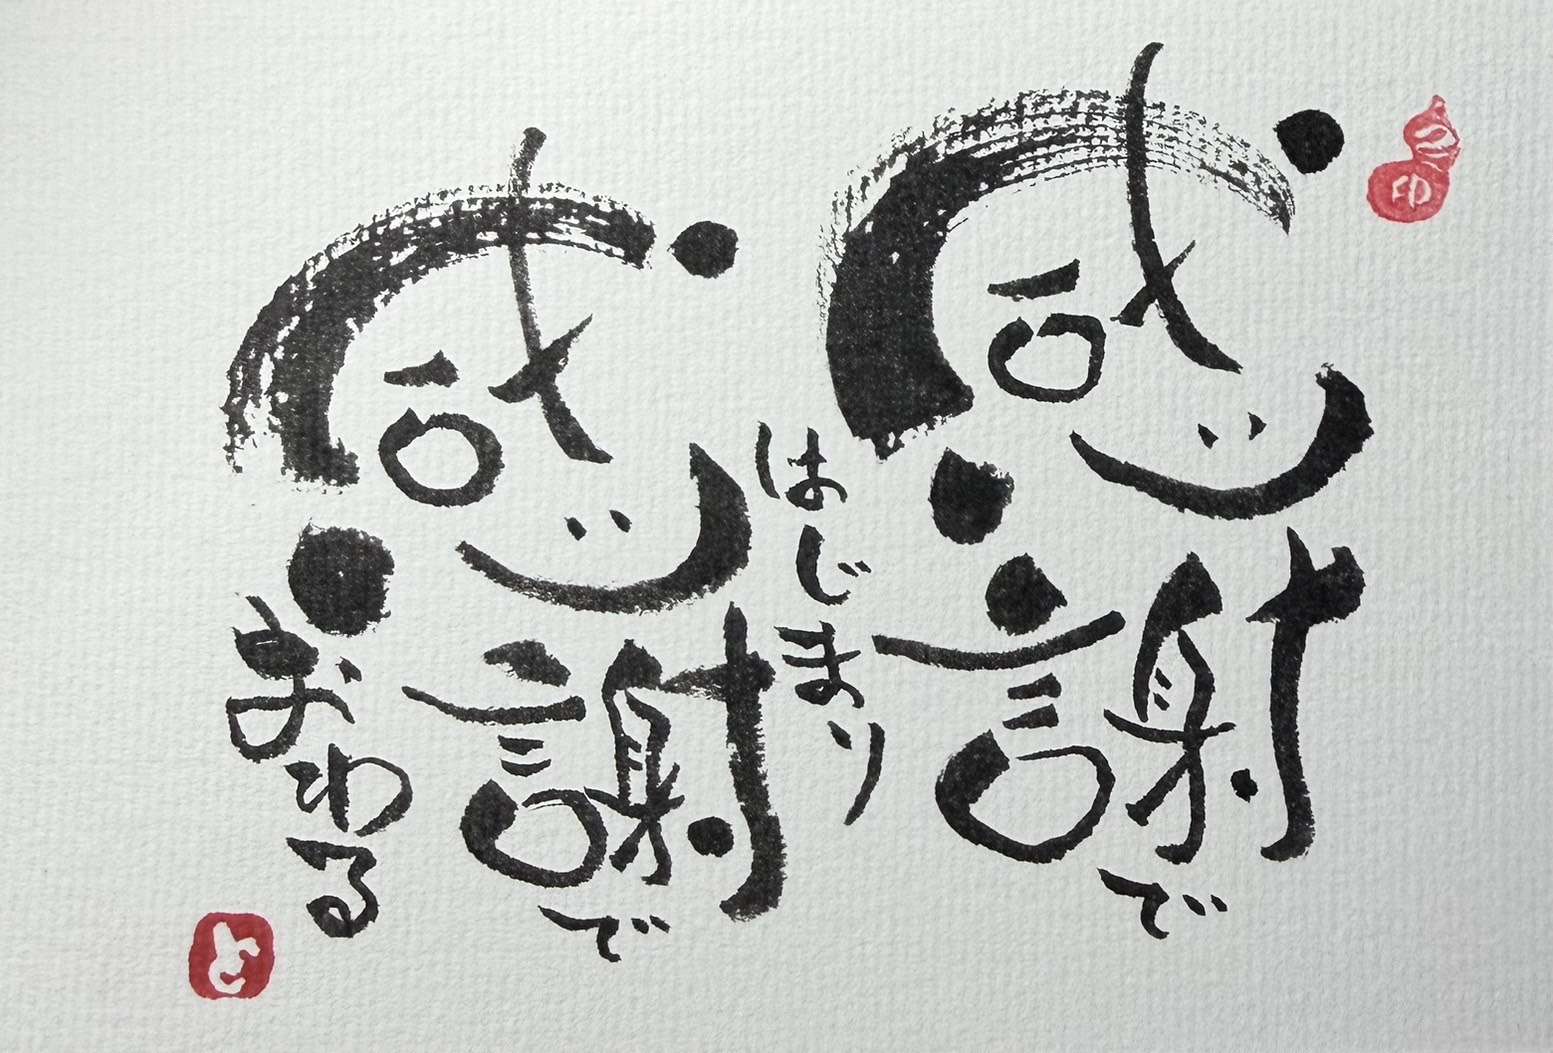 感謝で
はじまり
感謝で
おわる
と